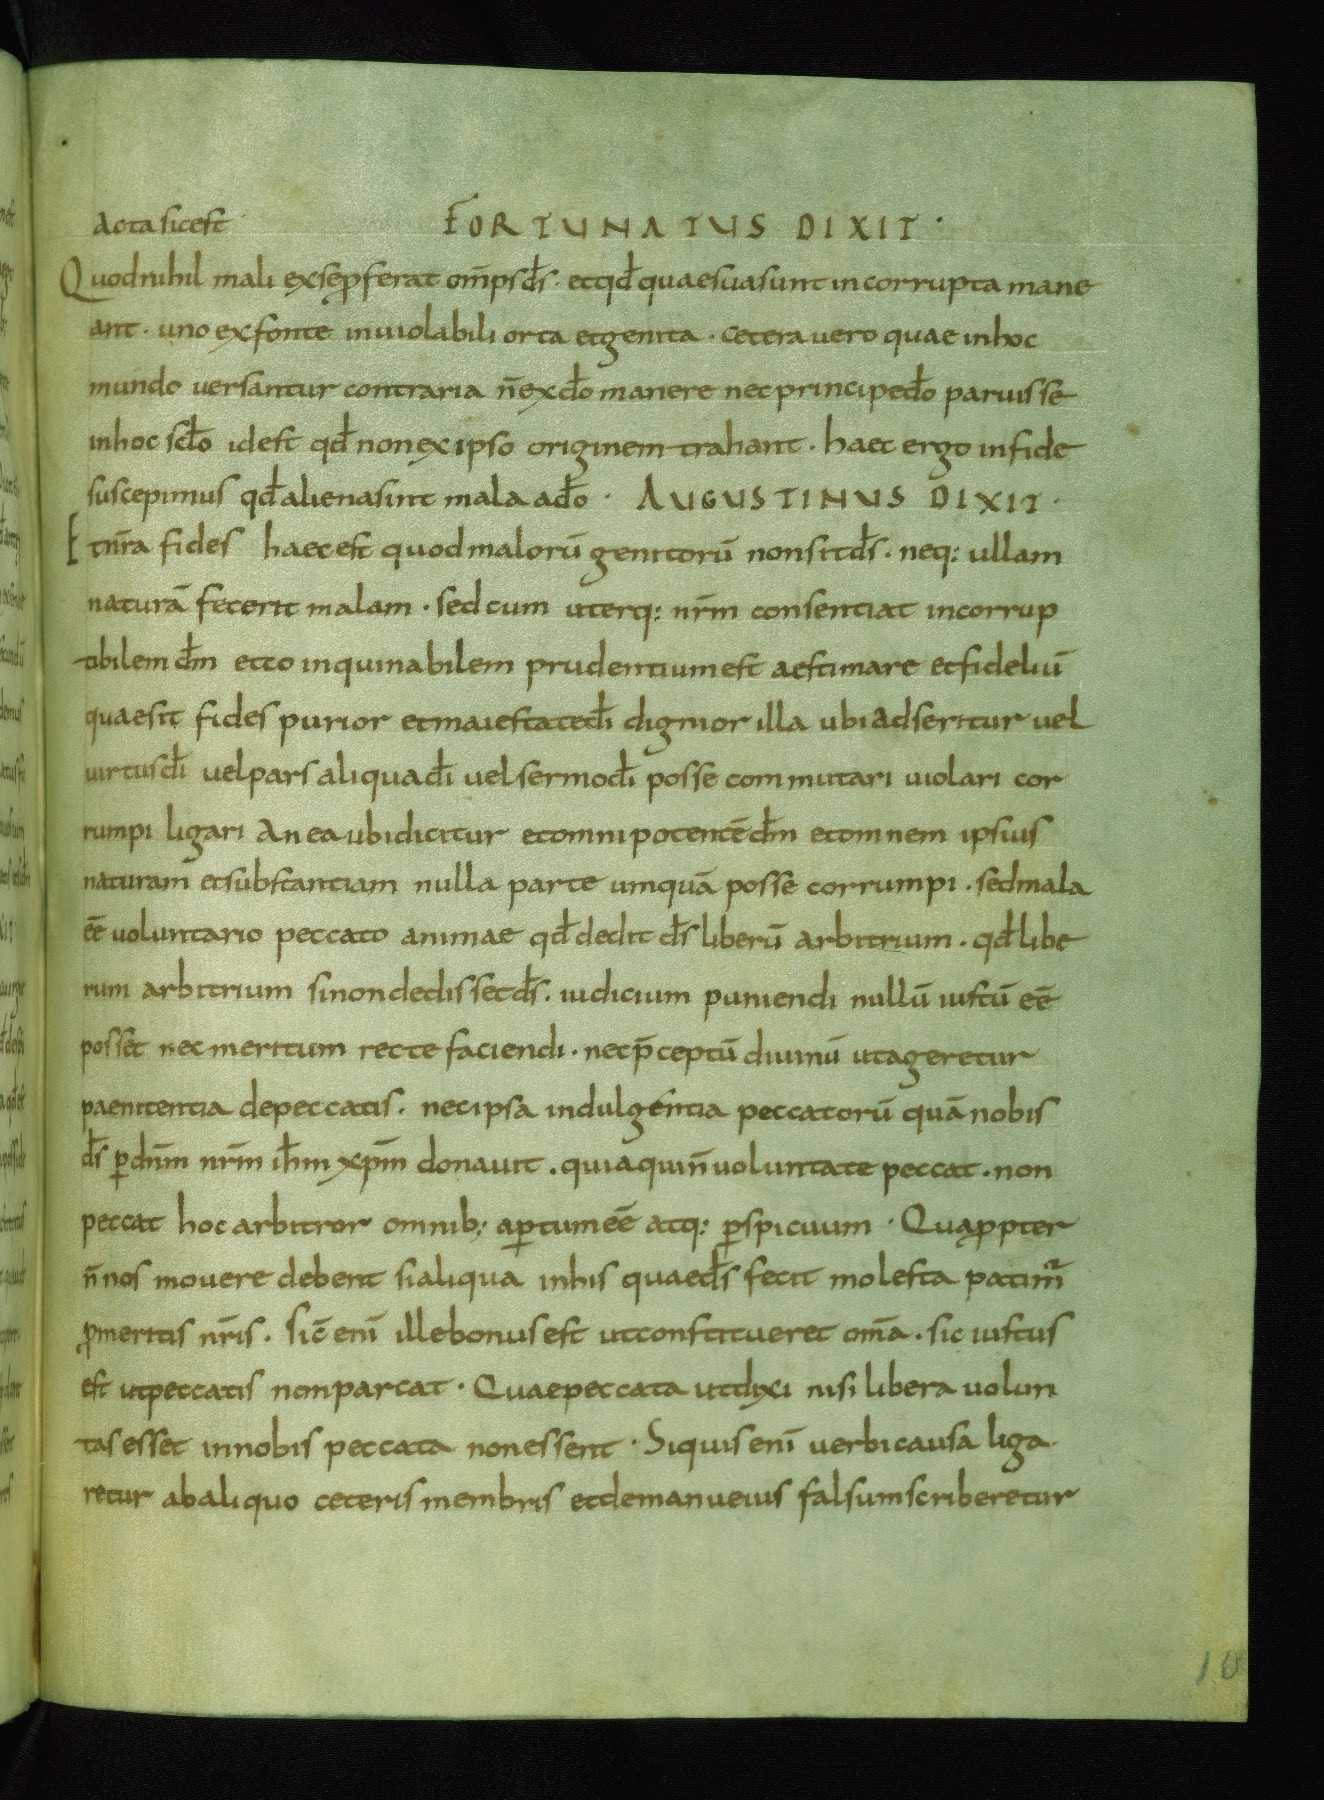 acta sic est · FORTUNATUS DIXIT ·
Quod nihil mali ex se ꝓferat om̄ps d̄s · et qd̄ quae sua sunt incorrupta mane
ant · uno ex fonte inuiolabili orta et genita · cetera uero quae in hoc
mundo uersantur contraria n̄ ex d̄o manere nec principe d̄o paruisse
in hoc sc̄lo id est qd̄ non ex ipso originem trahant · haec ergo in fide
suscepimus qd̄ aliena sint mala a d̄o · AUGUSTINUS DIXIT ·
Et nr̄a fides haec est quod malorū genitorū non sit d̄s · neq: ullam
naturā fecerit malam · sed cum uterq: nr̄m consentiat incorrup
tibilem d̄m et co inquinabilem prudentium est aestimare et fideliū
quae sit fides purior et maiestate d̄i dignior illa ubi adseritur uel
uirtus d̄i uel pars aliqua d̄i uel sermo d̄i posse commutari uiolari cor
rumpi ligari an ea ubi dicitur et omnipotentē d̄m et omnem ipsius
naturam et substantiam nulla parte umquā posse corrumpi · sed mala
eē uoluntario peccato animae qd̄ dedit d̄s liberū arbitrium · qd̄ libe
rum arbitrium si non dedisset d̄s · iudicium puniendi nullū iustū eē
posset nec meritum recte faciendi · nec p̄ceptū diuinū ut ageretur
paenitentia de peccatis · nec ipsa indulgentia peccatorū quā nobis
d̄s ꝑ dn̄m nr̄m ih̄m xp̄m donauit · quia qui n̄ uoluntate peccat · non
peccat hoc arbitror omnib; aꝑtum eē atq: ꝑspicuum · Quaꝓpter
n̄ nos mouere debent si aliqua in his quae d̄s fecit molesta patim̃
ꝓ meritis nr̄is · Sic̄ eni̅ ille bonus est ut constitueret om̄a · sic iustus
est ut peccatis non parcat · Quae peccata ut dixi nisi libera uolun
tas esset in nobis peccata non essent · Si quis eni̅ uerbi causa liga
retur ab aliquo ceteris membris et de manu eius falsum scriberetur
10